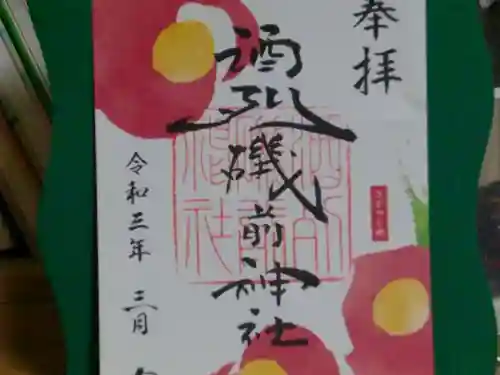 奉拝
酒列磯前神社
令和三年 三月